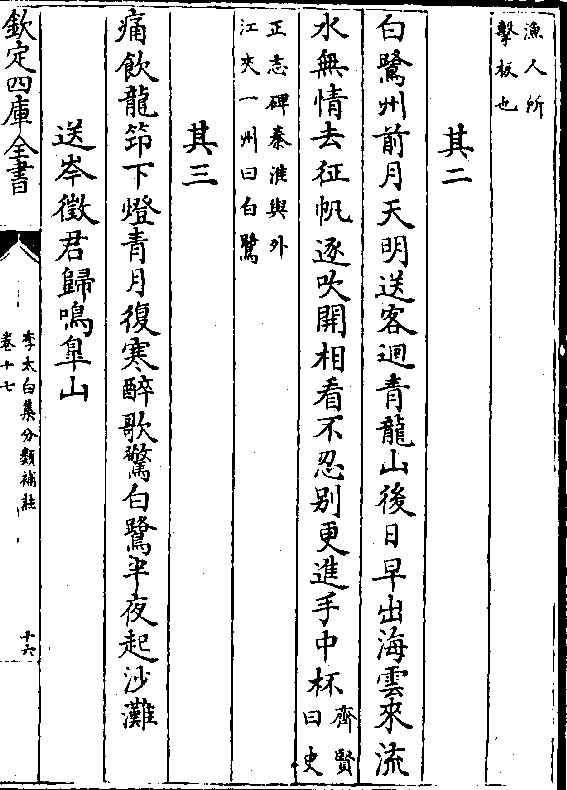 漁人所
擊板也
其二
白鷺州前月天明送客迴青龍山後日早出海雲來流
水無情去征帆逐吹開相看不忍别更進手中杯齊賢
曰史
正志碑秦淮與外
江夾一州曰白鷺
其三
痛飲龍筇下燈青月復寒醉歌驚白鷺半夜起沙灘
送岑徵君歸鳴臯山
欽定四庫全書
李太白集分類補註
卷十七
十六